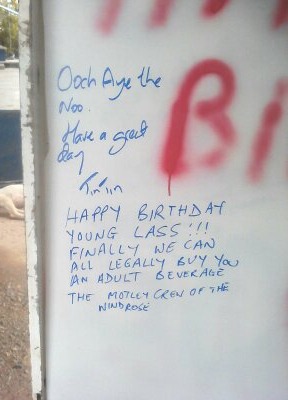 Ooch Aye the
Noo.
Have a great
day
Tin Tin
HAPPY BIRTHDAY
YOUNG LASS!!!
FINALLY WE CAN
ALL LEGALLY BUY YOU
AN ADULT BEVERAGE
THE MOTLEY CREW OF THE
WINDROSE
Bi